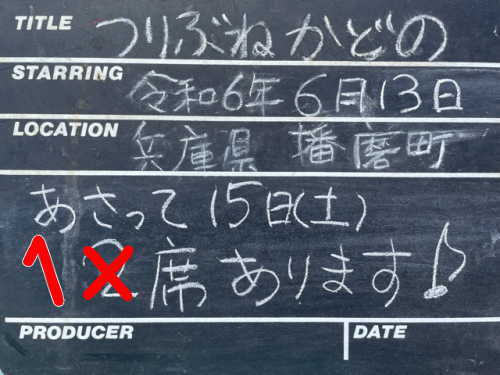 TITLE つりぶねかどの
STARRING 令和6年6月13日
LOCATION 兵庫県 播磨町
あさって15日(土)
1 2席あります♪
PRODUCER DATE